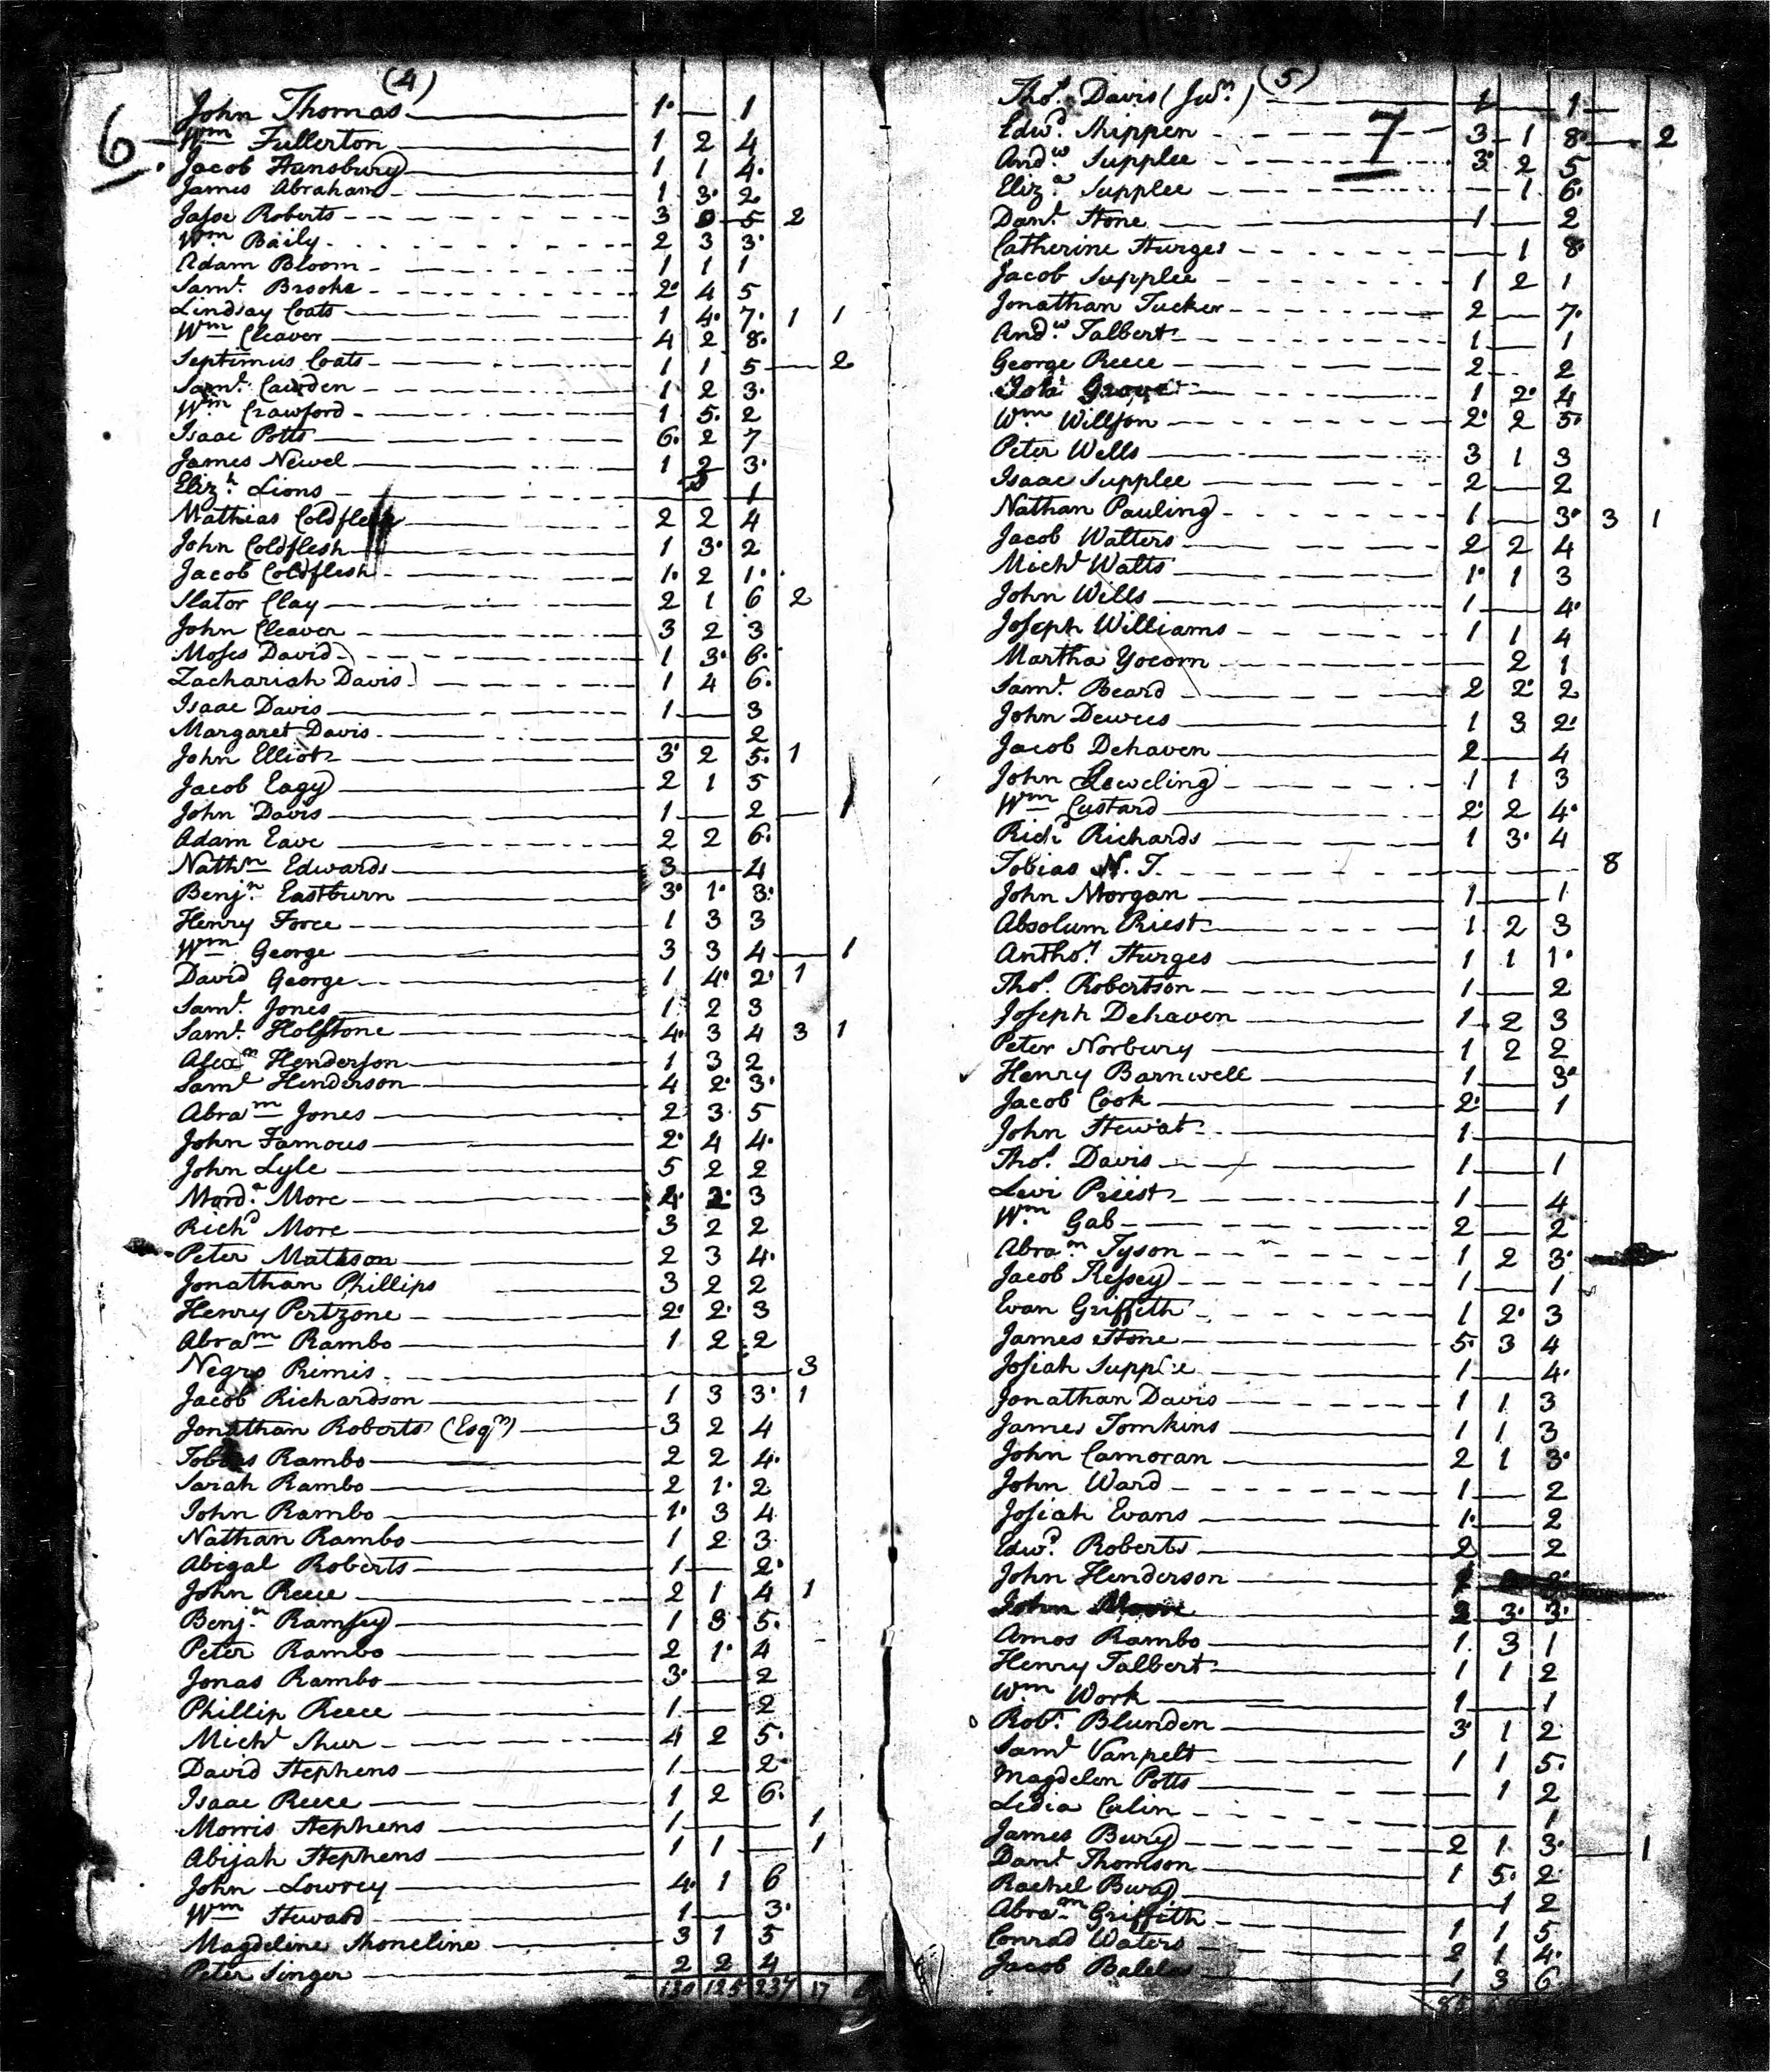 (4)
6
John Thomas 1 — 1
Wm Fullerton 1 2 4
Jacob Hansbury 1 1 4
James Abraham 1 3 2
Jesse Roberts 3 5 2
Wm Baily 2 3 3
Adam Bloom 1 1 1
Saml. Brooke 2 4 5
Lindsay Coats 1 4 7 1 1
Wm Cleaver 4 2 8
Septimus Coats 1 1 5 — 2
Saml. Cawden 1 2 3
Wm Crawford 1 5 2
Isaac Potts 6 2 7
James Newel 1 2 3
Elizh. Lions 1
Mathias Coldflesh 2 2 4
John Coldflesh 1 3 2
Jacob Coldflesh 1 2 1
Slator Clay 2 1 6 2
John Cleaver 3 2 3
Moses David 1 3 6
Zachariah Davis 1 4 6
Isaac Davis 1 — 3
Margaret Davis — 2
John Elliot 3 2 5 1
Jacob Eagy 2 1 5
John Davis 1 — 2 — 1
Adam Eave 2 2 6
Nathn Edwards 3 — 4
Benjn. Eastburn 3 1 3
Henry Force 1 3 3
Wm George 3 3 4 — 1
David George 1 4 2 1
Saml. Jones 1 2 3
Saml. Holstone 4 3 4 3 1
Alexn Henderson 1 3 2
Saml Henderson 4 2 3
Abram Jones 2 3 5
John Famous 2 4 4
John Lyle 5 2 2
Morda. More 2 3
Richd More 3 2 2
Peter Matheson 2 3 4
Jonathan Phillips 3 2 2
Henry Pertzone 2 2 3
Abram Rambo 1 2 2
Negro Rimis 3
Jacob Richardson 1 3 3 1
Jonathan Roberts (Esqr) 3 2 4
Tobias Rambo 2 2 4
Sarah Rambo 2 1 2
John Rambo 1 3 4
Nathan Rambo 1 2 3
Abigal Roberts 1 — 2
John Reece 2 1 4 1
Benjn. Ramsey 1 3 5
Peter Rambo 2 1 4
Jonas Rambo 3 — 2
Phillip Reece 1 — 2
Michl Shur 4 2 5
David Stephens 1 — 2
Isaac Reece 1 2 6
Morris Stephens 1 — 1
Abijah Stephens 1 1 — 1
John Lowrey 4 1 6
Wm Steward 1 — 3
Magdeline Shoneline 3 1 5
Peter Singer 2 2 4
130 125 237 17
(5)
7
Thos. Davis (Junr) 1 — 1
Edwd. Shippen 3 1 8 — 2
Andw Supplee 3 2 5
Eliza Supplee — 1 6
Danl. Stone 1 — 2
Catherine Sturges — 1 8
Jacob Supplee 1 2 1
Jonathan Tucker 2 — 7
Andw Talbert 1 — 1
George Reece 2 — 2
Grove 1 2 4
Wm Willson 2 2 5
Peter Wells 3 1 3
Isaac Supplee 2 — 2
Nathan Pauling 1 — 3 3 1
Jacob Walters 2 2 4
Michl Walts 1 1 3
John Wills 1 — 4
Joseph Williams 1 1 4
Martha Yocom — 2 1
Saml. Beard 2 2 2
John Dewees 1 3 2
Jacob Dehaven 2 — 4
John Leweling 1 1 3
Wm Custard 2 2 4
Richd Richards 1 3 4
Tobias N. T. 8
John Morgan 1 — 1
Absolum Priest 1 2 3
Anthoy Sturges 1 1 1
Thos. Robertson 1 — 2
Joseph Dehaven 1 2 3
Peter Norbury 1 2 2
Henry Barnwell 1 — 3
Jacob Cook 2 — 1
John Stewat 1 —
Thos. Davis 1 — 1
Levi Priest 1 — 4
Wm Gab 2 — 2
Abram. Tyson 1 2 3
Jacob Ressey 1 — 1
Evan Griffith 1 2 3
James Stone 5 3 4
Josiah Supplee 1 — 4
Jonathan Davis 1 1 3
James Tomkins 1 1 3
John Camoran 2 1 3
John Ward 1 — 2
Josiah Evans 1 — 2
Edwd. Roberts 2 — 2
John Henderson
John Moore 2 3 3
Amos Rambo 1 3 1
Henry Talbert 1 1 2
Wm Work 1 — 1
Robt. Blunden 3 1 2
Saml Vanpelt 1 1 5
Magdelen Potts — 1 2
Lidia Calin — 1
James Bury 2 1 3 — 1
Danl Thomson 1 5 2
Rachel Bury — 1 2
Abram Griffith 1 1 5
Conrad Waters 2 1 4
Jacob 1 3 6